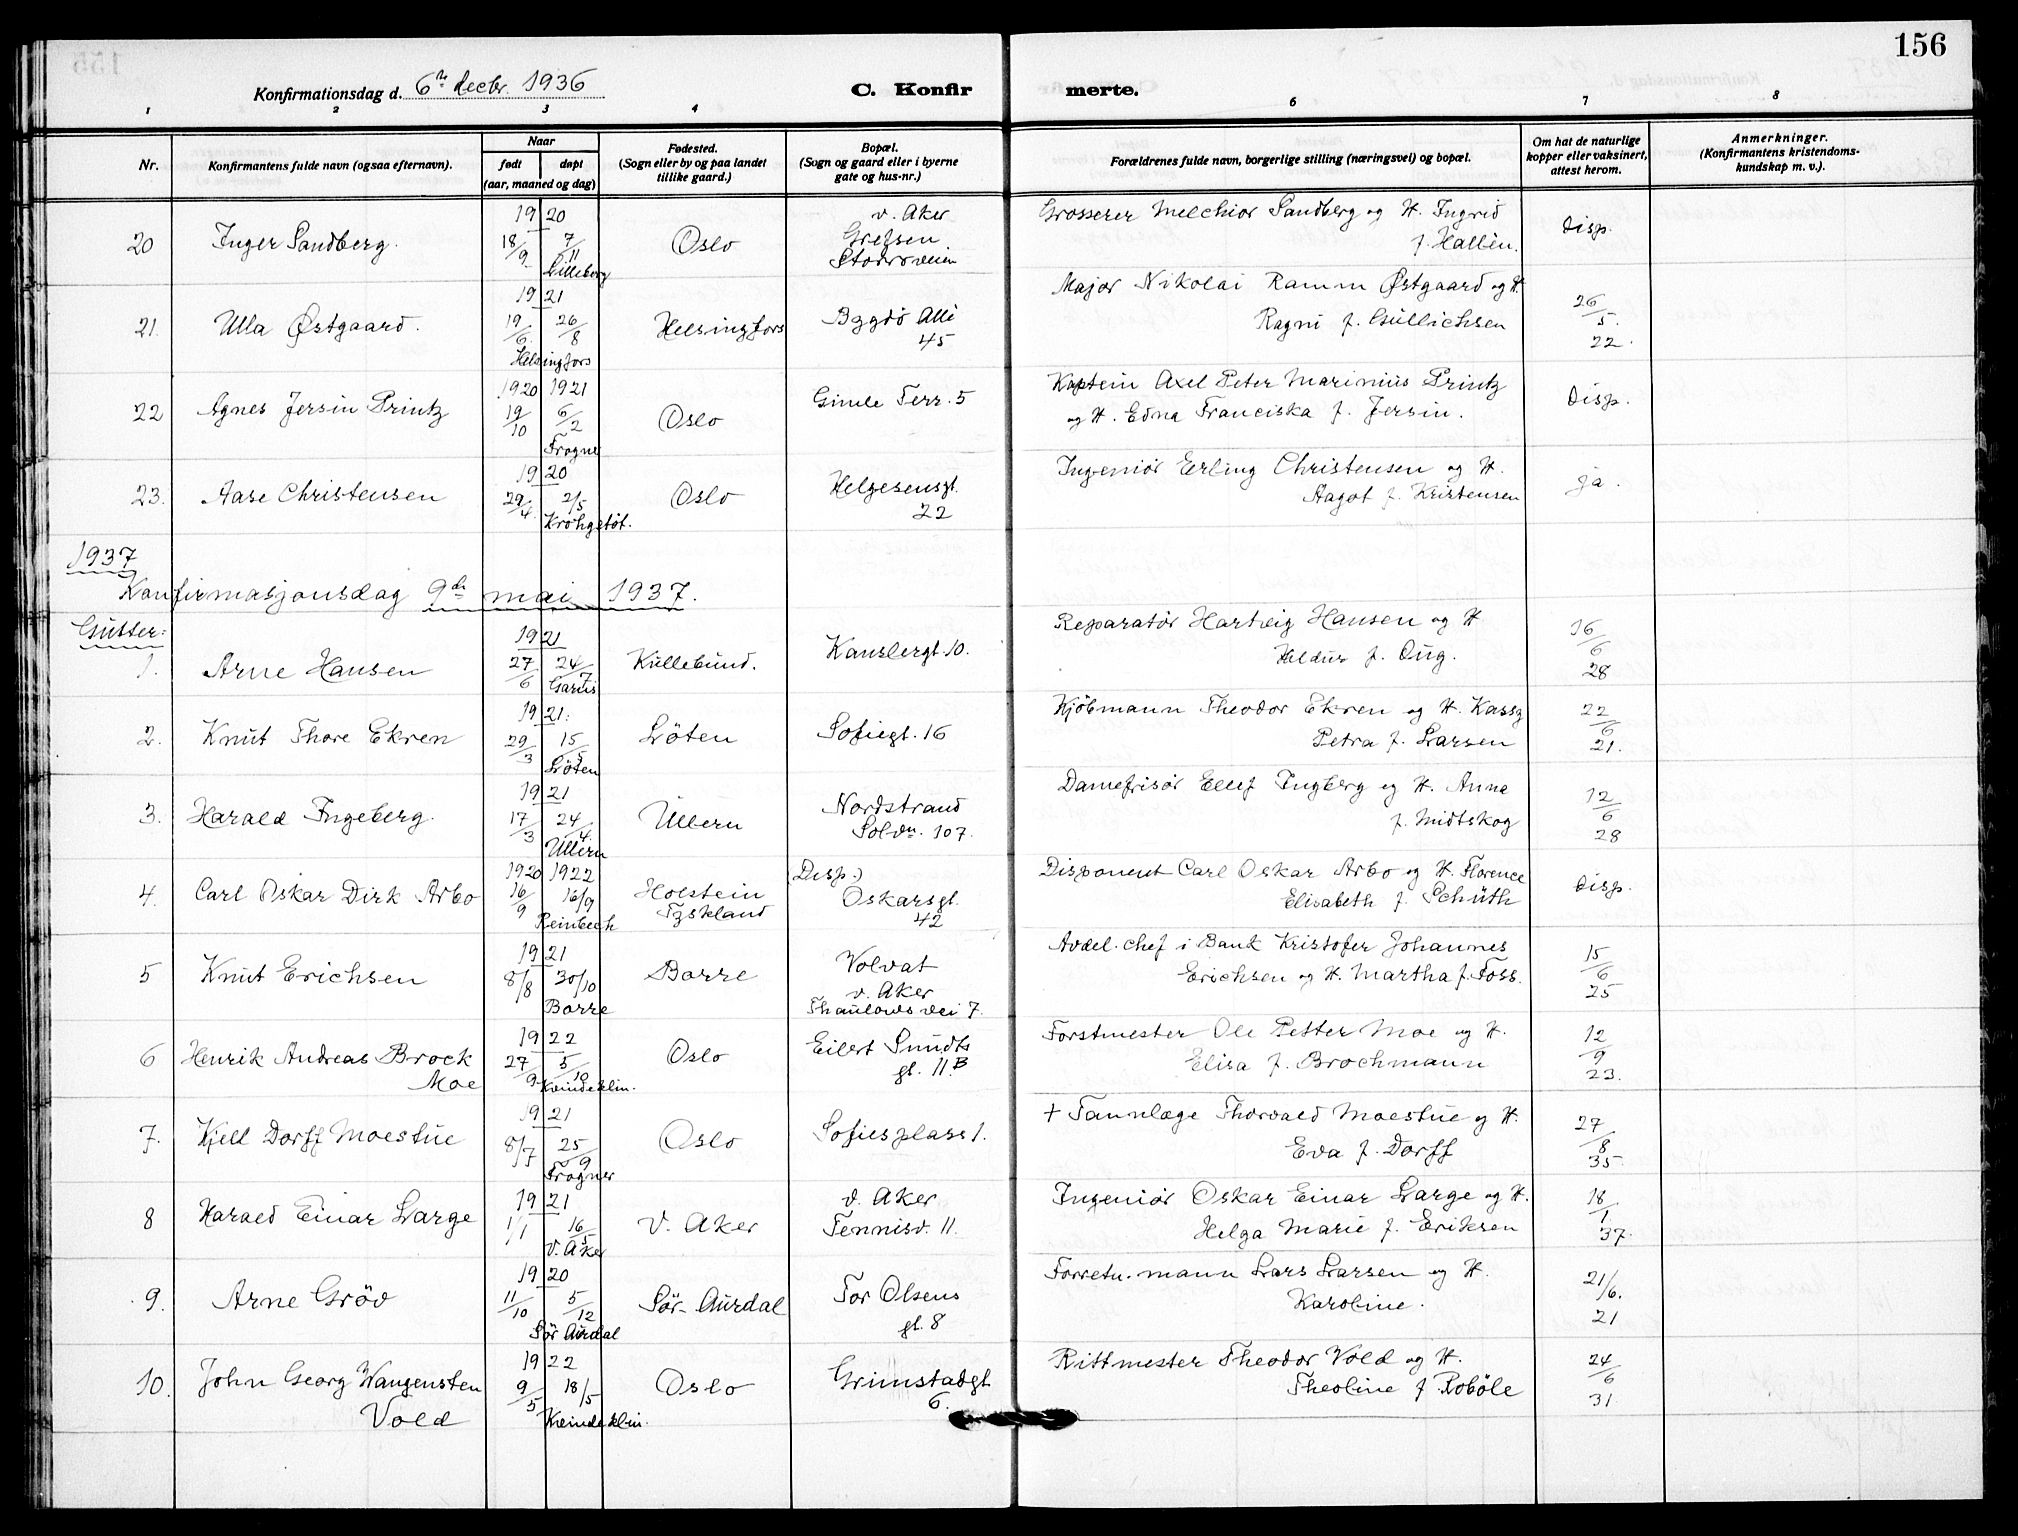 156
Konfirmationsdag d. 6te decbr. 1936
C. Konfirmerte.
1 2 3 4 6 7 8
Nr.
Konfirmantens fulde navn (ogsaa efternavn).
Naar
født døpt
(aar, maaned og dag)
Fødested.
(Sogn eller by og paa landet
tillike gaard.)
Bopæl.
(Sogn og gaard eller i byerne
gate og hus-nr.)
Forældrenes fulde navn, borgerlige stilling (næringsvei) og bopæl.
Om hat de naturlige
kopper eller vaksinert,
attest herom.
Anmerkninger.
(Konfirmantens kristendoms-
kundskap m. v.).
20 Inger Sandberg. 1920 18/9 7/11 Lilleborg Oslo v. Aker Grefsen Storoveien Grosserer Melchior Sandberg og H. Ingrid f. Hallèn. Disp.
21. Ulla Østgaard. 1921 19/6 26/8 Helsingfors Helsingfors Bygdö Allé 45 Major Nikolai Ramm Østgaard og H. Ragni f. Gullichsen 26/5. 22.
22 Agnes Jersin Printz 1920 1921 19/10 6/2 Frogner Oslo Gimle Terr. 5 Kaptein Axel Peter Marinius Printz og H. Edna Franciska f. Jersin. Disp.
23. Aase Christensen 1920 29/4 2/5 Krohgstöt. Oslo Helgesensgt. 22 Ingeniör Erling Christensen og H. Aagot f. Kristensen ja.
1937
Konfirmasjonsdag 9de mai 1937.
Gutter:
1. Arne Hansen 1921 27/6 24/7 Garnis Kullebund. Kanslergt 10. Reparatör Hartvig Hansen og H Heldur f. Oug. 16/6 28
2. Knut Thore Ekren 1921. 29/3 15/5 Löten Löten Sofiegt. 16 Kjöbmann Theodor Ekren og H. Kassy Petra f. Larsen 22/6 21.
3. Harald Ingeberg. 1921 17/3 24/4 Ullern Ullern Nordstrand Solvn. 107. Damefrisör Ellef Ingberg og H. Anna f. Midtskog 12/6 28
4. Carl Oskar Dirk Arbo 1920 1922 16/9 16/9 Reinbech Holstein Tyskland (Disp.) Oskarsgt. 42 Disponent Carl Oskar Arbo og H. Florence Elisabeth f. Schüth Disp.
5 Knut Erichsen 1921 8/8 30/10 Borre Borre Volvat v. Aker Thaulows vei 7. Avdel. chef i Bank Kristofer Johannes Erichsen og H. Martha f. Foss. 15/6 25
6 Henrik Andreas Brock Moe 1922 27/9 5/10 Kvindeklin. Oslo Eilert Sundts gt. 11.B Forstmester Ole Petter Moe og H. Elisa f. Brochmann 12/9 23.
7. Kjell Dorff Moestue 1921 8/7 25/9 Frogner Oslo Sofies plass 1. + Tannlæge Thorvald Moestue og H. Eva f. Dorff 27/8 35
8 Harald Einar Large 1921 1/1 16/5 V. Aker V. Aker v. Aker Tennisv. 11. Ingeniör Oskar Einar Large og H. Helga Marie f. Eriksen 18/1 37.
9. Arne Gröv 1920 11/10 5/12 Sör Aurdal Sör-Aurdal Tor Olsens gt. 8 Forretn. mann Lars Larsen og H. Karoline. 21/6. 21
10. John Georg Wangensten Vold 1922 9/5 18/5 Kvindeklin. Oslo Grimstadgt 6. Rittmester Theodor Vold og H. Theoline f Roböle 24/6 31